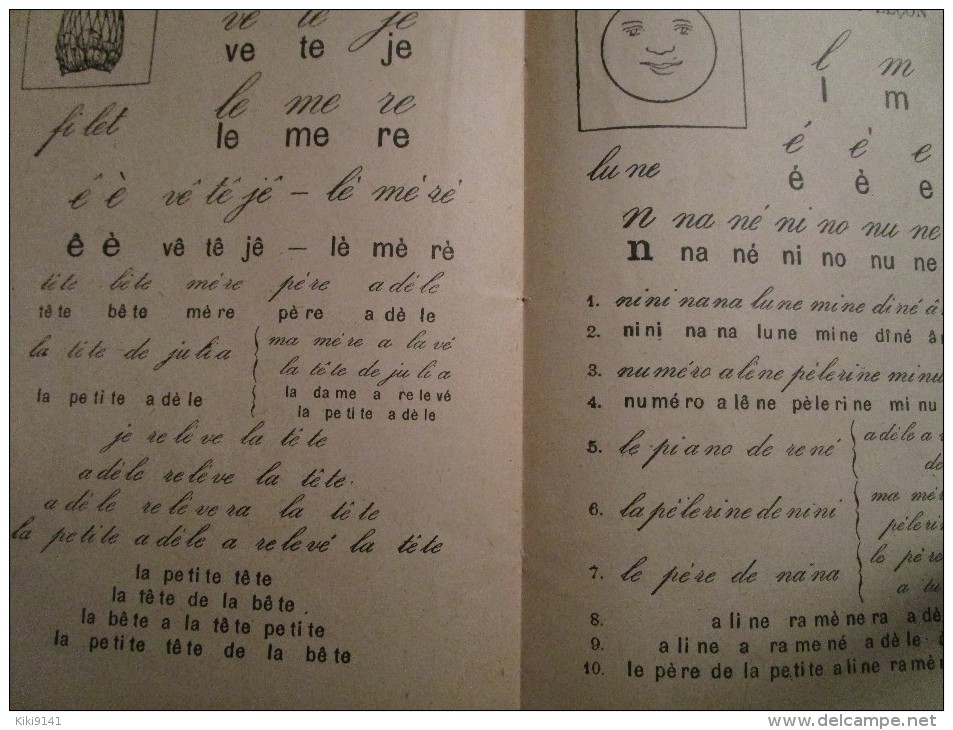 ve te je
ve te je
le me re
filet
le me re
ê è vê tê jê – lè mè rè
ê è vê tê jê – lè mè rè
tête bête mère père adèle
tê te bê te mè re pè re a dè le
la tête de julia
ma mère a lavé
la tête de julia
la pe ti te a dè le
la da me a re le vé
la pe ti te a dè le
je relève la tête
adèle relève la tête.
adèle relèvera la tête
la petite adèle a relevé la tête
la pe ti te tê te
la tê te de la bê te.
la bê te a la tê te pe ti te
la pe ti te tê te de la bê te
LEÇON
l m
l m
é è e
lu ne
é è e
n na né ni no nu ne
n na né ni no nu ne
1. nini nana lune mine dîné
2. ni ni na na lu ne mi ne dî né
3. numéro alêne pèlerine minu
4. nu mé ro a lê ne pè le ri ne mi nu
5. le piano de rené
adèle a
de
6. la pèlerine de nini
ma mèr
pèlerin
7. le père de nana
le père
a
8. a li ne ra mè ne ra a dè
9. a li ne a ra me né a dè le
10. le pè re de la pe ti te a li ne ra mè
Kiki9141
delcampe.net